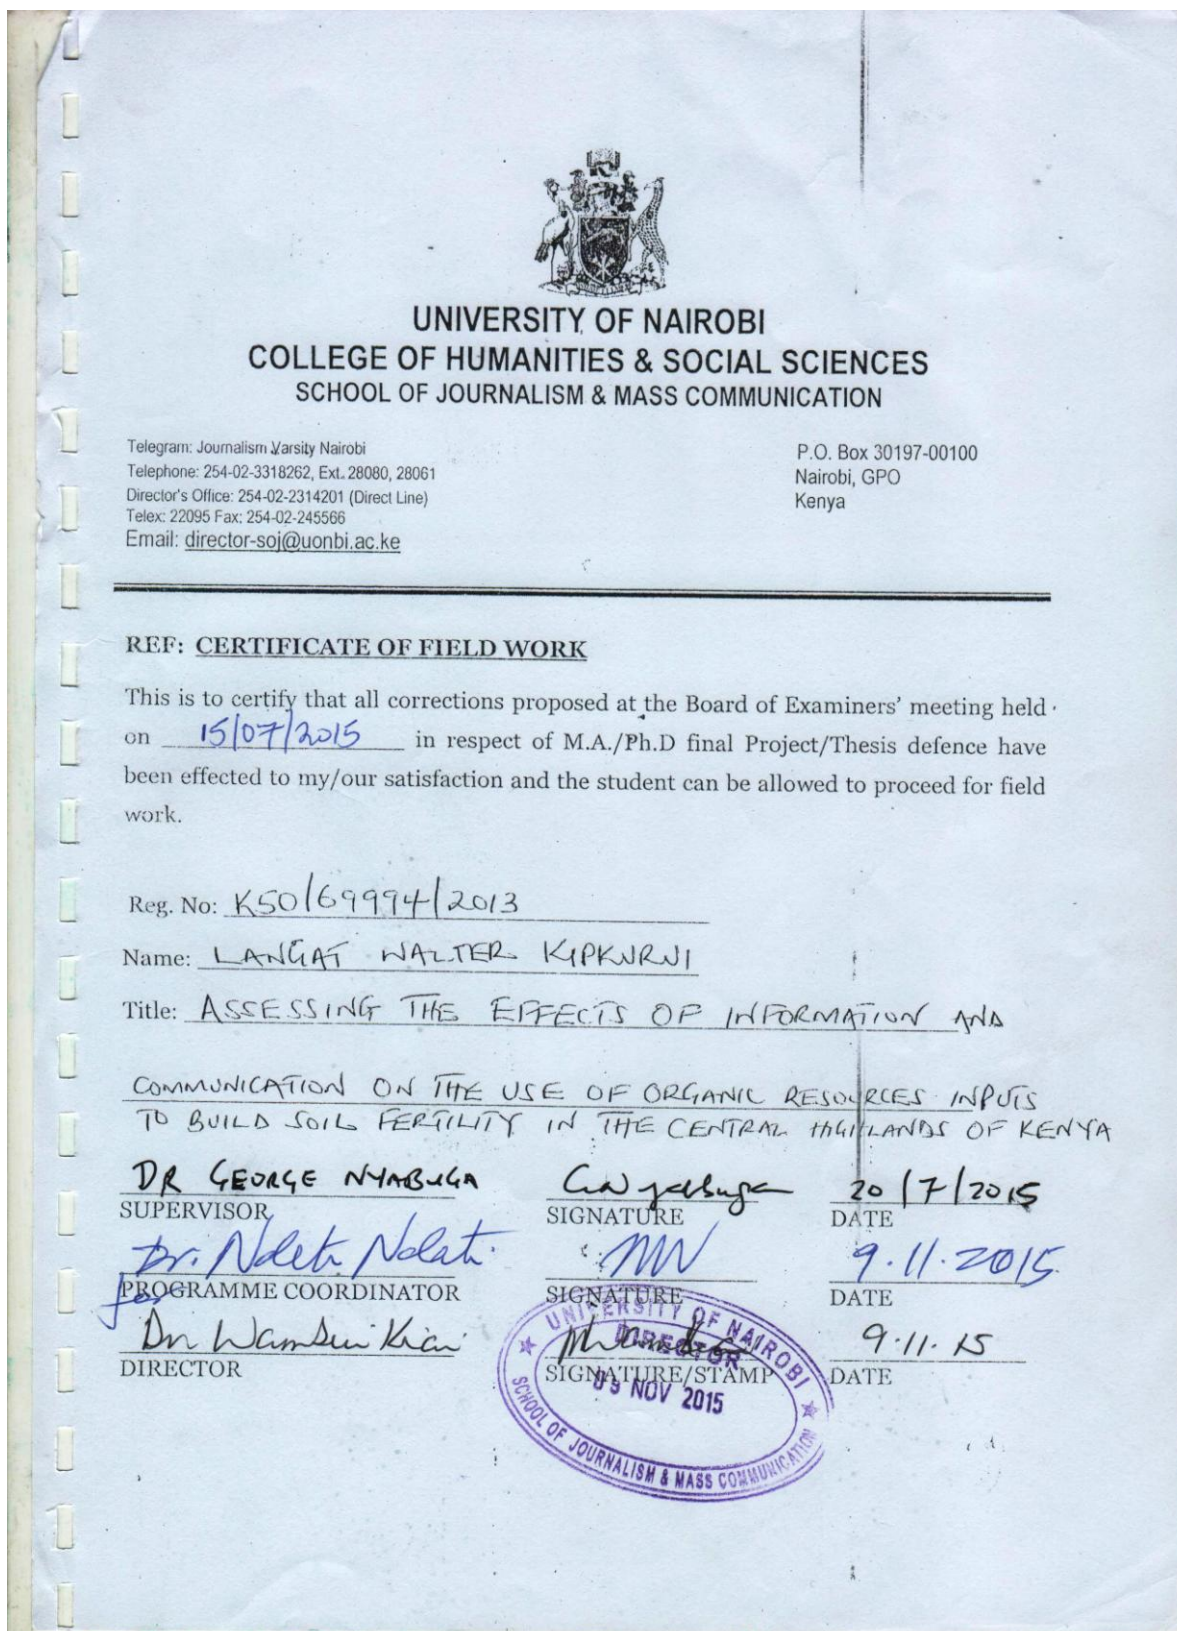 UNIVERSITY OF NAIROBI
COLLEGE OF HUMANITIES & SOCIAL SCIENCES
SCHOOL OF JOURNALISM & MASS COMMUNICATION
Telegram: Journalism Varsity Nairobi
Telephone: 254-02-3318262, Ext. 28080, 28061
Director's Office: 254-02-2314201 (Direct Line)
Telex: 22095 Fax: 254-02-245566
Email: director-soj@uonbi.ac.ke
P.O. Box 30197-00100
Nairobi, GPO
Kenya
REF: CERTIFICATE OF FIELD WORK
This is to certify that all corrections proposed at the Board of Examiners' meeting held
on 15/07/2015 in respect of M.A./Ph.D final Project/Thesis defence have
been effected to my/our satisfaction and the student can be allowed to proceed for field
work.
Reg. No: K50/69994/2013
Name: LANGAT WALTER KIPKURUI
Title: ASSESSING THE EFFECTS OF INFORMATION AND
COMMUNICATION ON THE USE OF ORGANIC RESOURCES INPUTS
TO BUILD SOIL FERTILITY IN THE CENTRAL HIGHLANDS OF KENYA
DR GEORGE NYABUGA 20/7/2015
SUPERVISOR SIGNATURE DATE
Dr. Ndeti Ndati 9.11.2015
for PROGRAMME COORDINATOR SIGNATURE DATE
Dr Wambui Kiai 9.11.15
DIRECTOR SIGNATURE/STAMP DATE
UNIVERSITY OF NAIROBI
DIRECTOR
09 NOV 2015
SCHOOL OF JOURNALISM & MASS COMMUNICATION